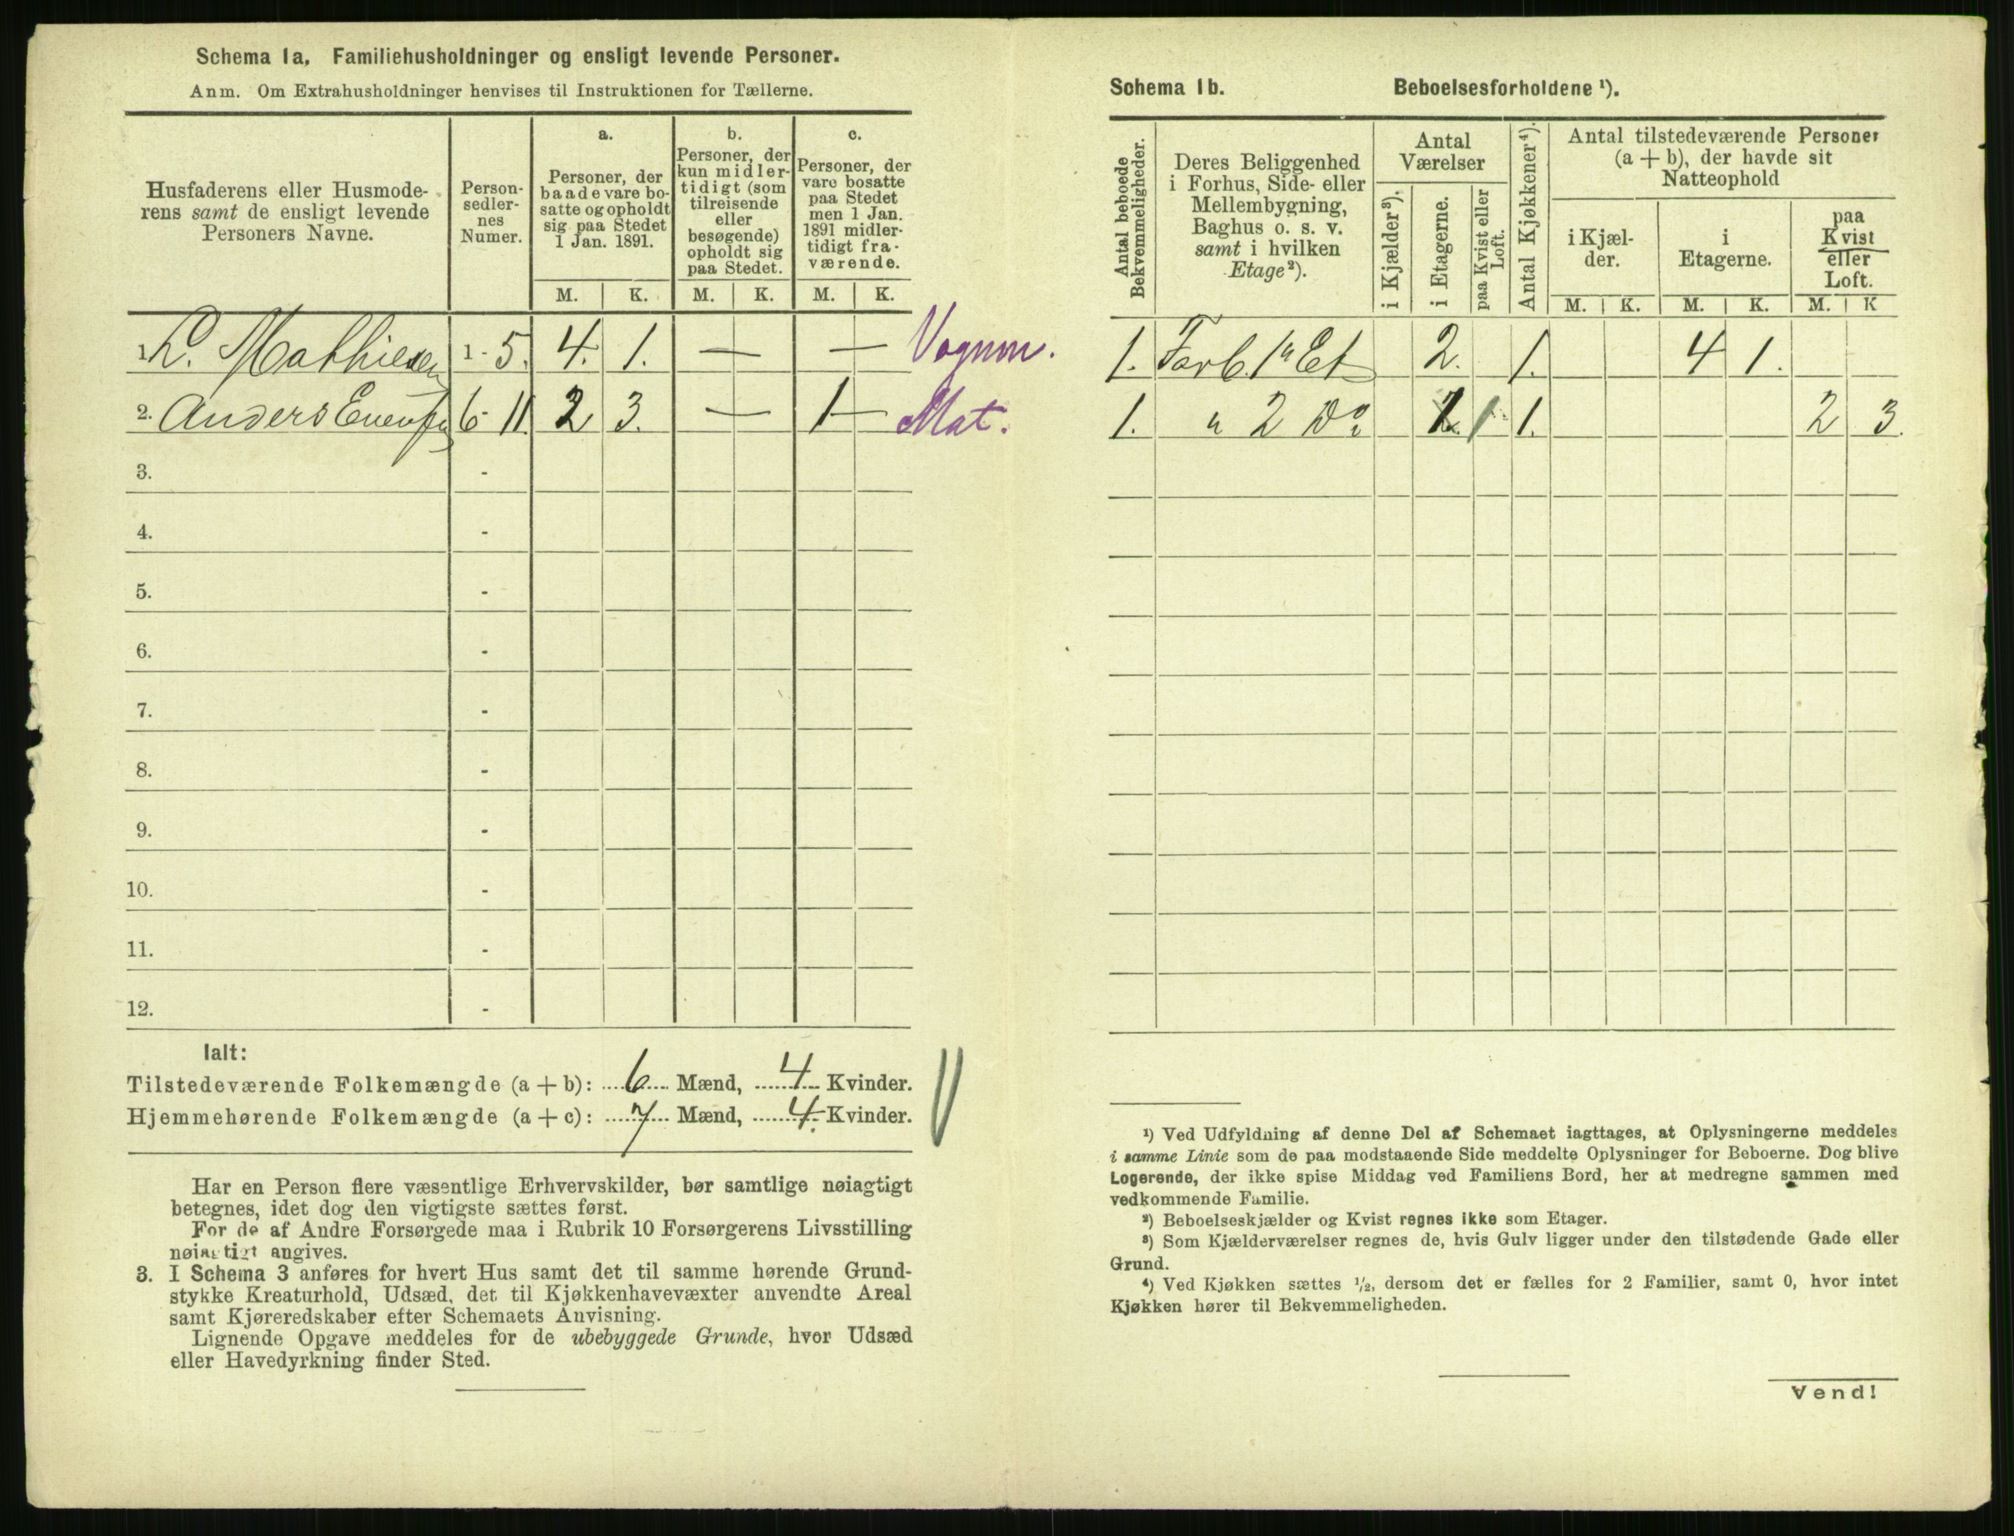 Schema 1a, Familiehusholdninger og ensligt levende Personer.
Anm. Om Extrahusholdninger henvises til Instruktionen for Tællerne.
Husfaderens eller Husmoderens samt de ensligt levende Personers Navne.
Personsedlernes Numer.
a.
Personer, der baade vare bosatte og opholdt sig paa Stedet 1 Jan. 1891.
b.
Personer, der kun midlertidigt (som tilreisende eller besøgende) opholdt sig paa Stedet.
c.
Personer, der vare bosatte paa Stedet men 1 Jan. 1891 midlertidigt fraværende.
M. K. M. K. M. K.
1. L. Mathiesen 1 - 5. 4. 1. — — Vognm.
2. Anders Evensen 6 - 11. 2 3. — 1 — Mat.
3. -
4. -
5. -
6. -
7. -
8. -
9. -
10. -
11. -
12. -
Ialt:
Tilstedeværende Folkemængde (a + b): 6 Mænd, 4 Kvinder.
Hjemmehørende Folkemængde (a + c): 7 Mænd, 4. Kvinder.
Har en Person flere væsentlige Erhvervskilder, bør samtlige nøiagtigt
betegnes, idet dog den vigtigste sættes først.
For de af Andre Forsørgede maa i Rubrik 10 Forsørgerens Livsstilling
nøiagtigt angives.
3. I Schema 3 anføres for hvert Hus samt det til samme hørende Grund-
stykke Kreaturhold, Udsæd, det til Kjøkkenhavevæxter anvendte Areal
samt Kjøreredskaber efter Schemaets Anvisning.
Lignende Opgave meddeles for de ubebyggede Grunde, hvor Udsæd
eller Havedyrkning finder Sted.
Schema 1b. Beboelsesforholdene ¹).
Antal beboede Bekvemmeligheder.
Deres Beliggenhed i Forhus, Side- eller Mellembygning, Baghus o. s. v. samt i hvilken Etage²).
Antal Værelser
i Kjælder³),
i Etagerne.
paa Kvist eller Loft.
Antal Kjøkkener⁴).
Antal tilstedeværende Personer (a + b), der havde sit Natteophold
i Kjælder.
i Etagerne.
paa Kvist eller Loft.
M. K. M. K. M. K
1. Forb. 1ᵃ Et 2. 1. 4 1.
1. " 2 Do 1 1. 2 3.
¹) Ved Udfyldning af denne Del af Schemaet iagttages, at Oplysningerne meddeles
i samme Linie som de paa modstaaende Side meddelte Oplysninger for Beboerne. Dog blive
Logerende, der ikke spise Middag ved Familiens Bord, her at medregne sammen med
vedkommende Familie.
²) Beboelseskjælder og Kvist regnes ikke som Etager.
³) Som Kjælderværelser regnes de, hvis Gulv ligger under den tilstødende Gade eller
Grund.
⁴) Ved Kjøkken sættes ½, dersom det er fælles for 2 Familier, samt 0, hvor intet
Kjøkken hører til Bekvemmeligheden.
Vend!